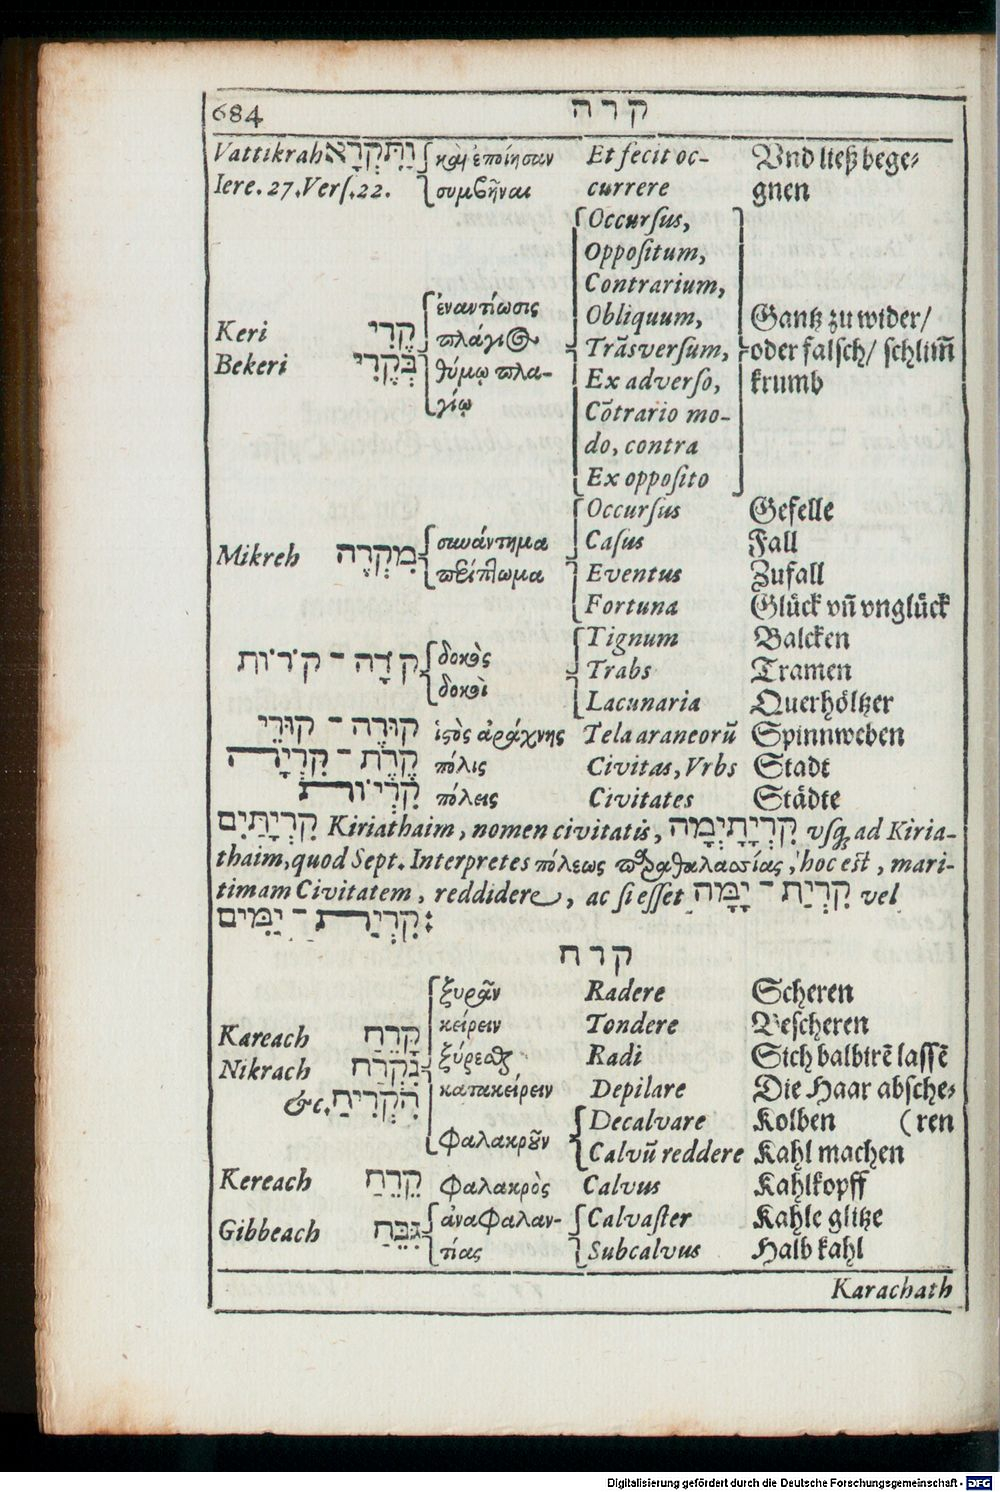 684 קרה
Vattikrah וַתִּקְרָא καὶ ἐποίησαν Et fecit oc- Vnd ließ bege-
Iere. 27. Vers. 22. συμβῆναι currere gnen
Occursus,
Oppositum,
Contrarium,
ἐναντίωσις Obliquum, Gantz zu wider/
Keri קֶרִי πλάγιος Trãsversum, oder falsch/ schlim̃
Bekeri בְּקֶרִי θύμῳ πλα- Ex adverso, krumb
γίῳ Cõtrario mo-
do, contra
Ex opposito
Occursus Gefelle
Mikreh מִקְרֶה συνάντημα Casus Fall
περίπτωμα Eventus Zufall
Fortuna Glück vñ vnglück
δοκὸς Tignum Balcken
קֹרָה - קֹרוֹת Trabs Tramen
δοκοὶ Lacunaria Querhöltzer
קוּרֶה - קוּרֵי ἱςὸς ἀράχνης Tela araneorũ Spinnweben
קֶרֶת - קִרְיָה πόλις Civitas, Vrbs Stadt
קְרָיוֹת πόλεις Civitates Städte
קִרְיָתַיִם Kiriathaim, nomen civitatis, קִרְיָתָיְמָה vsq; ad Kiria-
thaim, quod Sept. Interpretes πόλεως παραθαλασσίας, hoc est, mari-
timam Civitatem, reddidere, ac si esset קִרְיַת - יָמָּה vel
קִרְיַת - יַמִּים:
קרח
ξυρᾶν Radere Scheren
Kareach קָרֵחַ κείρειν Tondere Bescheren
Nikrach נִקְרַח ξύρεσθαι Radi Sich balbirẽ lassẽ
&c. הִקְרִיחַ κατακείρειν Depilare Die Haar absche-
Decalvare Kolben (ren
φαλακροῦν Calvũ reddere Kahl machen
Kereach קֵרֵחַ φαλακρὸς Calvus Kahlkopff
Gibbeach גִּבֵּחַ ἀναφαλαν- Calvaster Kahle glitze
τίας Subcalvus Halb kahl
Karachath
Digitalisierung gefördert durch die Deutsche Forschungsgemeinschaft - DFG